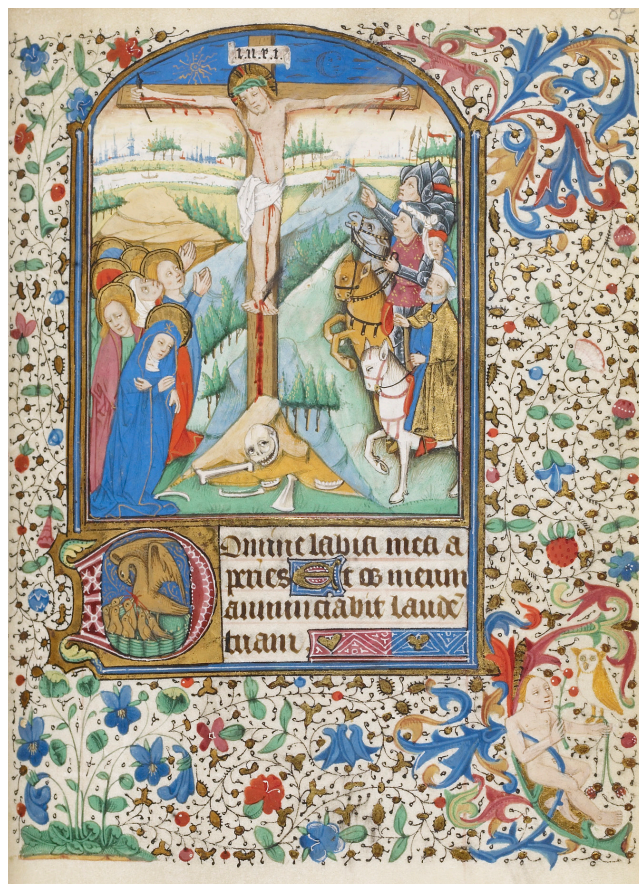 i.n.r.i.
Domine labia mea a
peries Et os meum
annunciabit laudē
tuam